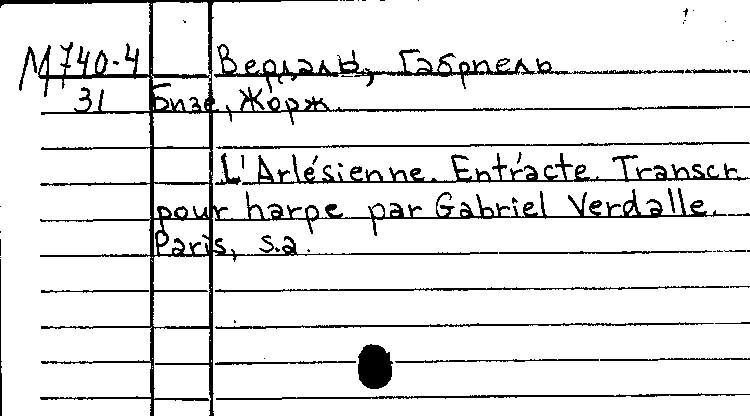 М740-4 Вердаль, Габриель
31 Бизе, Жорж.
L'Arlésienne. Entr'acte. Transcr.
pour harpe par Gabriel Verdalle.
Paris, s.a.